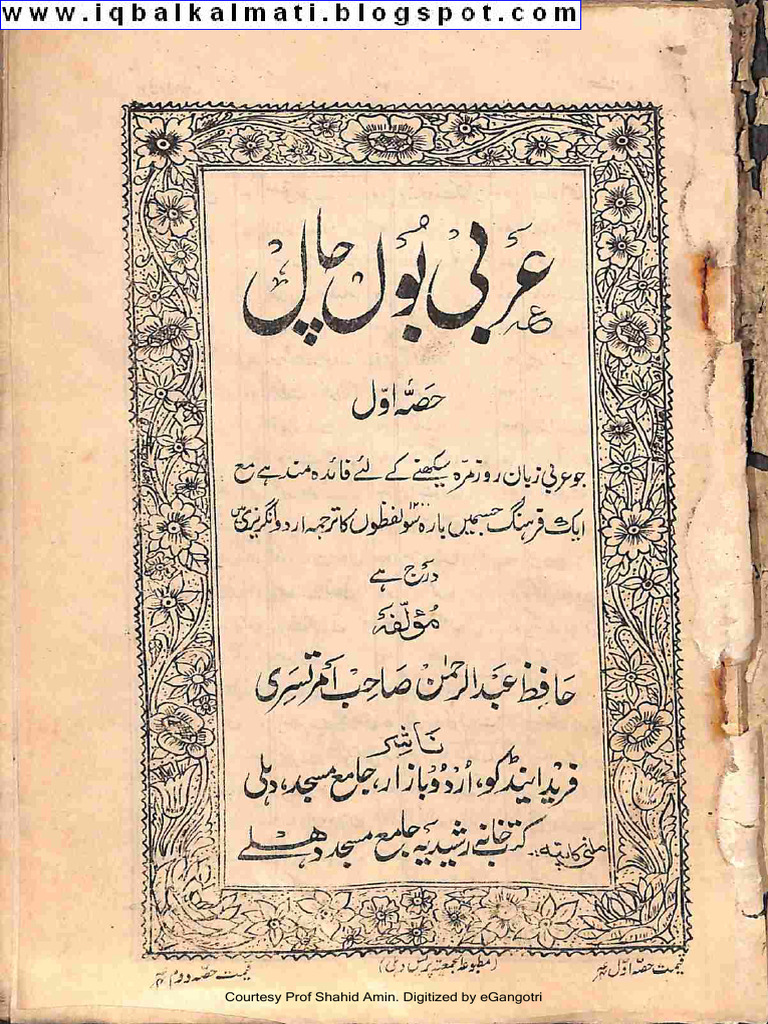 www.iqbalkalmati.blogspot.com
عربی بول چال
حصّہ اوّل
جو عربی زبان روزمرّہ سیکھنے کے لئے فائدہ مند ہے مع
ایک فرہنگ جسمیں بارہ سو ۱۲۰۰ لفظوں کا ترجمہ اردو انگریزی میں
درج ہے
مؤلّفہ
حافظ عبدالرحمٰن صاحب امرتسری
ناشر
فرید اینڈ کو، اُردو بازار، جامع مسجد، دہلی
ملنے کا پتہ:۔ کتب خانے رشیدیہ جامع مسجد دھلے
قیمت حصّہ اوّل
(مطبوعہ الجمعیۃ پریس دہلی)
قیمت حصّہ دوم
Courtesy Prof Shahid Amin. Digitized by eGangotri